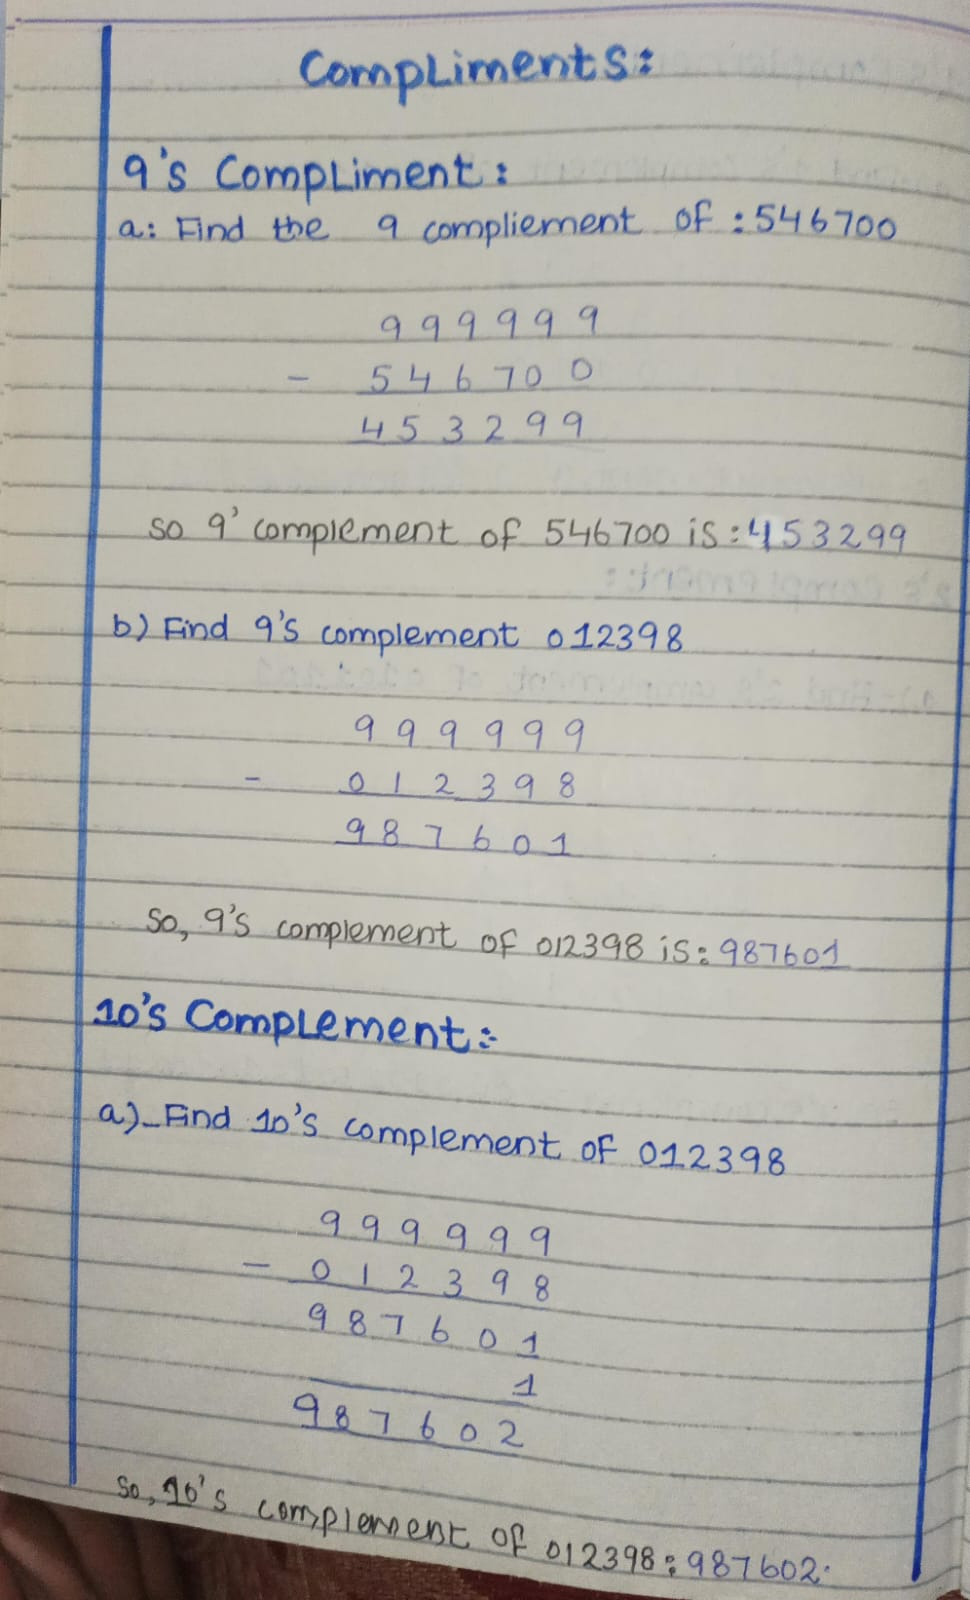 Compliments:
9's Compliment:
a: Find the 9 compliement of : 546700
9 9 9 9 9 9
- 5 4 6 7 0 0
4 5 3 2 9 9
so 9' complement of 546700 is : 453299
b) Find 9's complement 012398
9 9 9 9 9 9
- 0 1 2 3 9 8
9 8 7 6 0 1
So, 9's complement of 012398 is: 987601
10's Complement:-
a)- Find 10's complement of 012398
9 9 9 9 9 9
- 0 1 2 3 9 8
9 8 7 6 0 1
1
9 8 7 6 0 2
So, 10's complement of 012398: 987602.